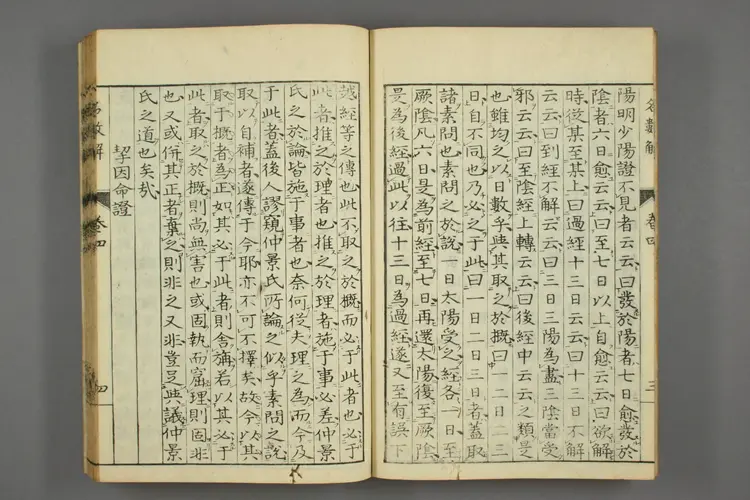 名數解 卷四 三
陽明少陽證不見者云云曰發於陽者七日愈發於
陰者六日愈云云曰至七日以上自愈云云曰欲解
時從某至某上曰過經十三日云云曰十三日不解
云云曰到經不解云云曰三日三陽為盡三陰當受
邪云云曰至陰經上轉云云曰後經中云云之類是
也雖均之以日數乎與其取之於概曰一日二日三
日自不同也乃必之于此曰一日二日三日者蓋取
諸素問也素問之於說一日太陽受之經各一日至
厥陰凡六日是為前經至七日再還太陽復至厥陰
是為後經過此以往十三日為過經遂又至有誤下
越經等之傳也此不取之於概而必于此者也必于
此者推之於理者也推之於理者施于事必差仲景
氏之於論皆施于事者也奈何從夫理之為而今及
于此者蓋後人謬窺仲景氏所論之似乎素問之說
取以自補者遂傳于今耶亦不可不擇矣故今以其
取于概者為正如其必于此者則舍旃若以其必于
此者取之於概則尚無害也或固執而窟理則固非
也又或併其正者棄之則非之又非豈足與議仲景
氏之道也矣哉
挈因命證
名數解 卷四 四